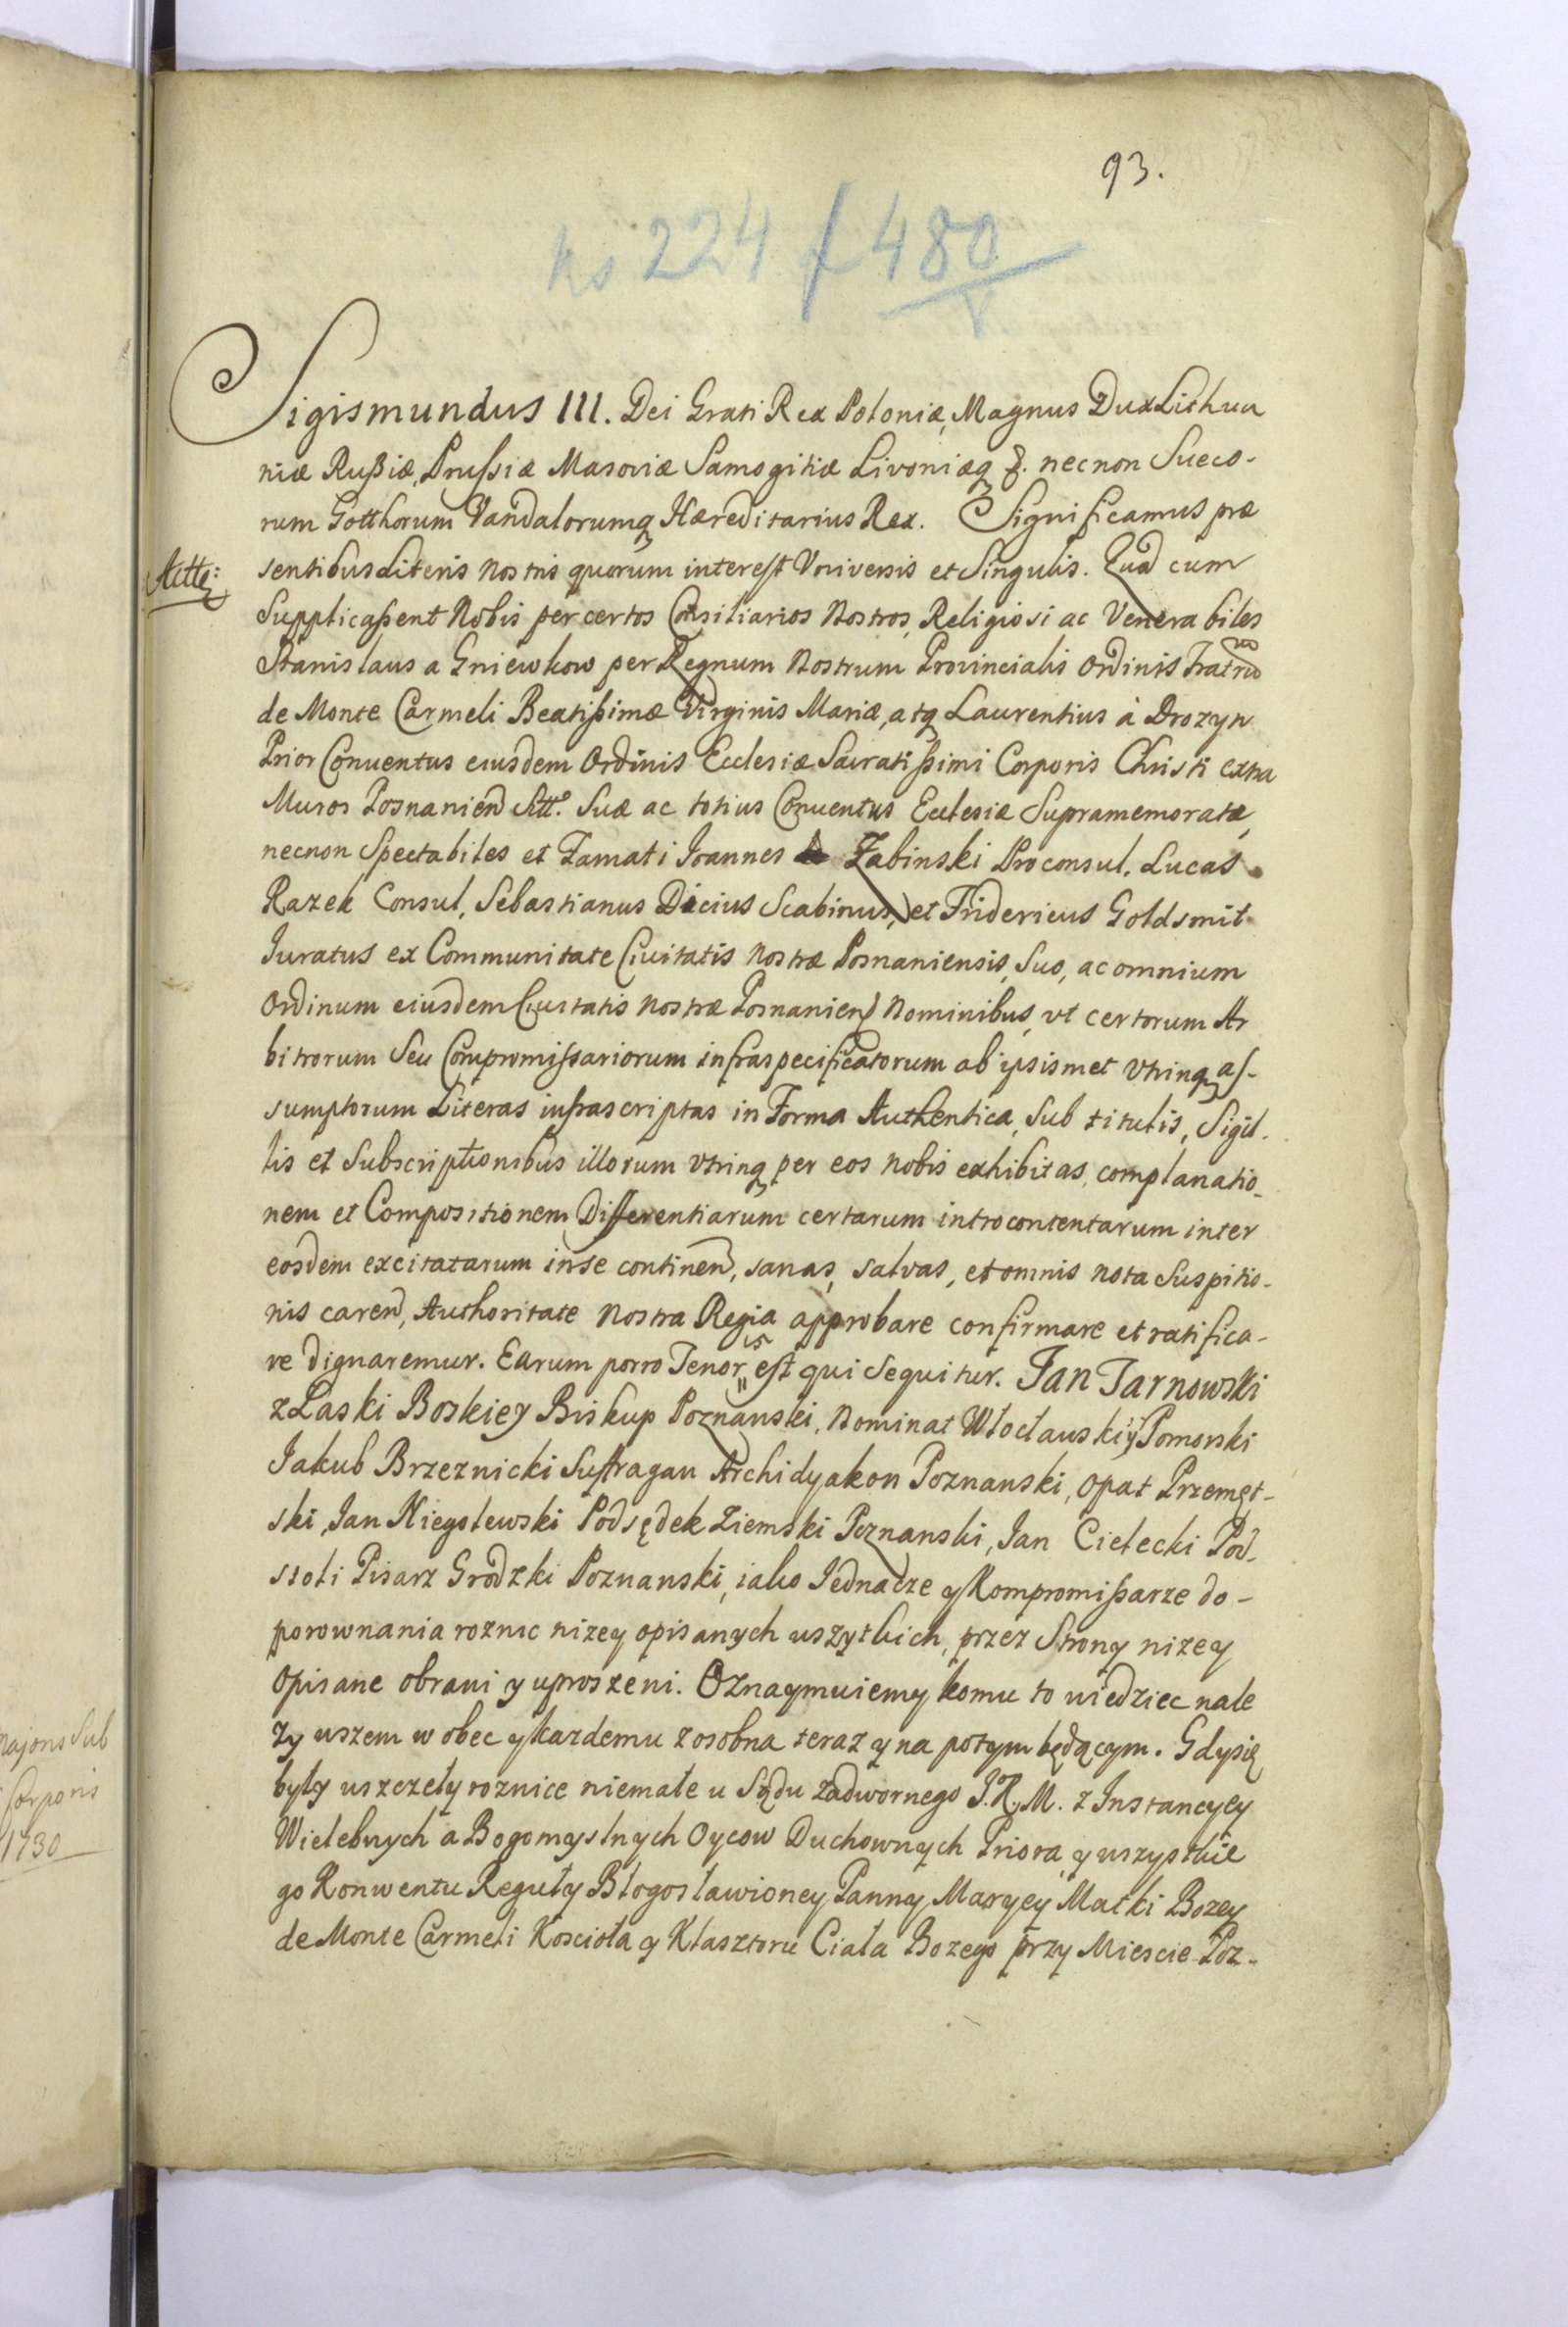 93.
ks 224 f 480
v
Sigismundus III. Dei Grati Rex Poloniæ, Magnus Dux Lithua
niæ Rußiæ, Prussiæ Masoviæ Samogitiæ Livoniæq &. necnon Sueco-
rum Gotthorum Vandalorumq Hæreditarius Rex. Significamus præ
sentibus Literis Nostris quorum interest Vniversis et Singulis. Quod cum
Supplicaßent Nobis per certos Consiliarios Nostros, Religiosi ac Venerabiles
Stanislaus a Gniewkow per Regnum Nostrum Provincialis Ordinis Fratrũ
de Monte Carmeli Beatißimæ Virginis Mariæ, atq Laurentius à Drozyn
Prior Conuentus eiusdem Ordinis Ecclesiæ Sacratißimi Corporis Christi extra
Muros Posnanien Suo. Suæ ac totius Conuentus Ecclesiæ Supramemoratæ,
necnon Spectabiles et Famati Joannes Zabinski Proconsul, Lucas
Razek Consul, Sebastianus Dicius Scabinus, et Fridericus Goldsmit
Juratus ex Communitate Civitatis Nostræ Posnaniensis, Suo, ac omnium
Ordinum eiusdem Civitatis Nostræ Posnanien Nominibus, vt certorum Ar
bitrorum Seu Compromißariorum infraspecificatorum ab ipsismet vtrinq as-
sumptorum Literas infrascriptas in Forma Authentica, Sub titulis, Sigil-
lis et Subscriptionibus illorum vtrinq per eos Nobis exhibitas, complanatio-
nem et Compositionem Differentiarum certarum introcontentarum inter
eosdem excitatarum in se continen, sanas, salvas, et omnis nota Suspitio-
nis caren, Authoritate Nostra Regia approbare confirmare et ratifica-
re dignaremur. Earum porro Tenor is est qui Sequitur. Jan Tarnowski
z Łaski Boskiey Biskup Poznanski, Nominat Włocławski y Pomorski
Jakub Brzeznicki Suffragan Archidyakon Poznanski, Opat Przemęt-
ski, Jan Niegolewski Podsędek Ziemski Poznanski, Jan Cielecki Pod-
stoli Pisarz Grodzki Poznanski, iako Jednacze y Kompromißarze do-
porownania roznic nizey opisanych wszytkich, przez Strony nizey
Opisane obrani y uproszeni. Oznaymuiemy komu to wiedziec nale
zy wszem w obec y kazdemu z osobna teraz y na potym będącym. Gdy się
były wszczeły roznice niemałe u Sądu Zadwornego J.K.M. z Instancyey
Wielebnych a Bogomyslnych Oycow Duchownych Priora y wszystkie
go Konwentu Reguły Błogosławioney Panny Maryey Matki Bozey
de Monte Carmeli Koscioła y Klasztoru Ciała Bozego przy Miescie Poz-
majoris Sub
Corporis
1730